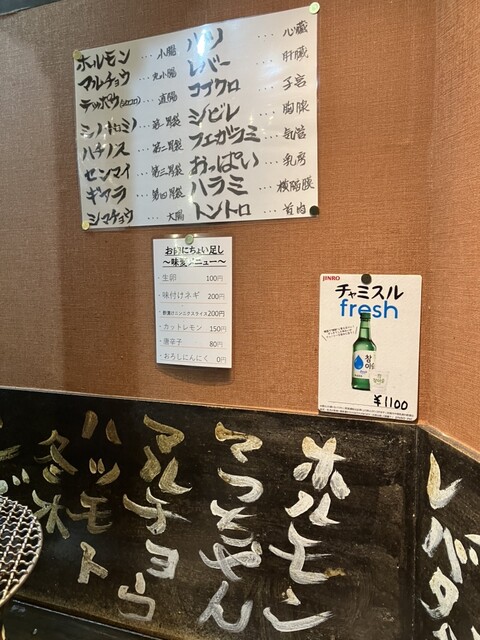 ホルモン … 小腸
マルチョウ … 丸小腸
テッポウ … 直腸
ミノ … 第一胃袋
ハチノス … 第二胃袋
センマイ … 第三胃袋
ギアラ … 第四胃袋
シマチョウ … 大腸
ハツ … 心臓
レバー … 肝臓
コブクロ … 子宮
シビレ … 胸腺
フエガラミ … 気管
おっぱい … 乳房
ハラミ … 横隔膜
トントロ … 首肉
お肉にちょい足し
～味変メニュー～
・生卵 100円
・味付けネギ 200円
200円
・カットレモン 150円
・唐辛子 80円
・おろしにんにく 0円
JINRO
チャミスル
fresh
참이슬
¥1100
ホルモン
マルチョウ
ハツモト